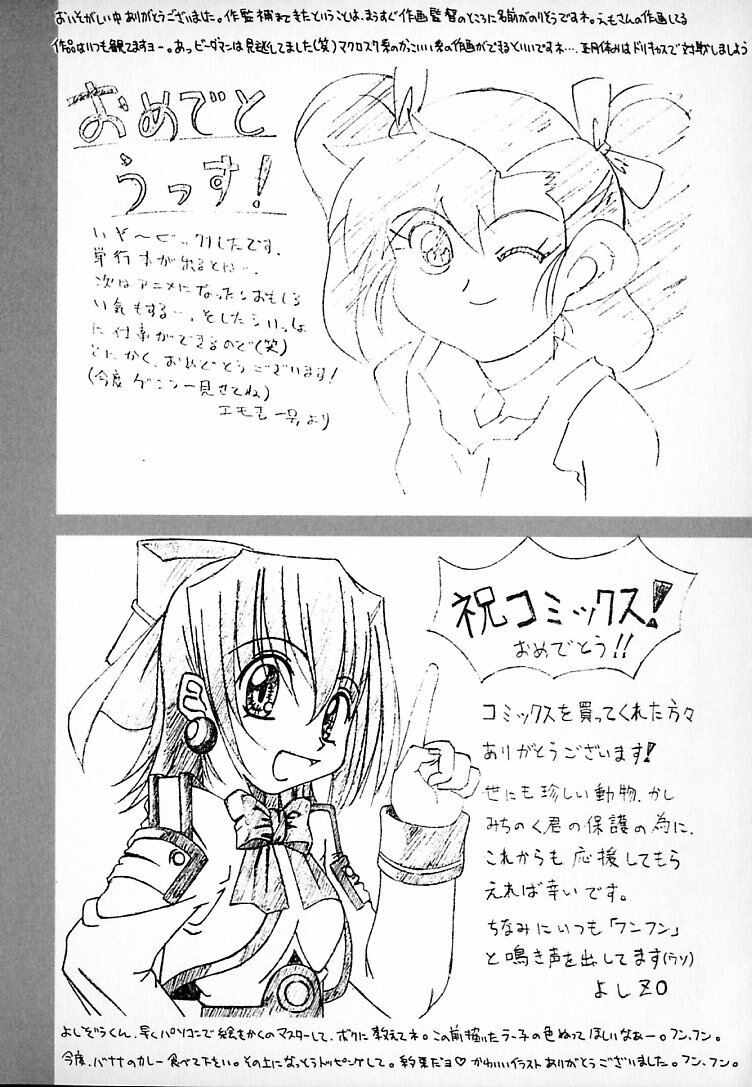 おいそがしい中ありがとうございました。作監補まできたということは、まうすぐ作画監督のところに名前がのりそうですネ。えもさんの作画してる
作品はいつも観てますヨー。あっビーダマンは見逃してました(笑)マクロスク系のかっこいい系の作画ができるといいですネ…。正月休みはドリキャスで対戦しましょう
おめでと
うっす!
いや〜ビックリしたです。
単行本が出るとは…。
次はアニメになったらおもしろ
い気もする…。そしたらいっしょ
に仕事ができるので(笑)
とにかく、おめでとうございます!
(今度ゲンコー見せてね)
エモを一号より
祝コミックス!
おめでとう!!
コミックスを買ってくれた方々
ありがとうございます!
世にも珍しい動物、かし
みちのく君の保護の為に、
これからも応援してもら
えれば幸いです。
ちなみにいつも「フンフン」
と鳴き声を出してます(ウソ)
よしZO
よしぞうくん、早くパソコンで絵をかくのマスターして、ボクに教えてネ。この前描いたラー子の色ぬってほしいなぁー。フン、フン。
今度、バナナのカレー食べて下さい。その上になっとうトッピングして。約束だヨ♡かわいいイラストありがとうございました。フン、フン。